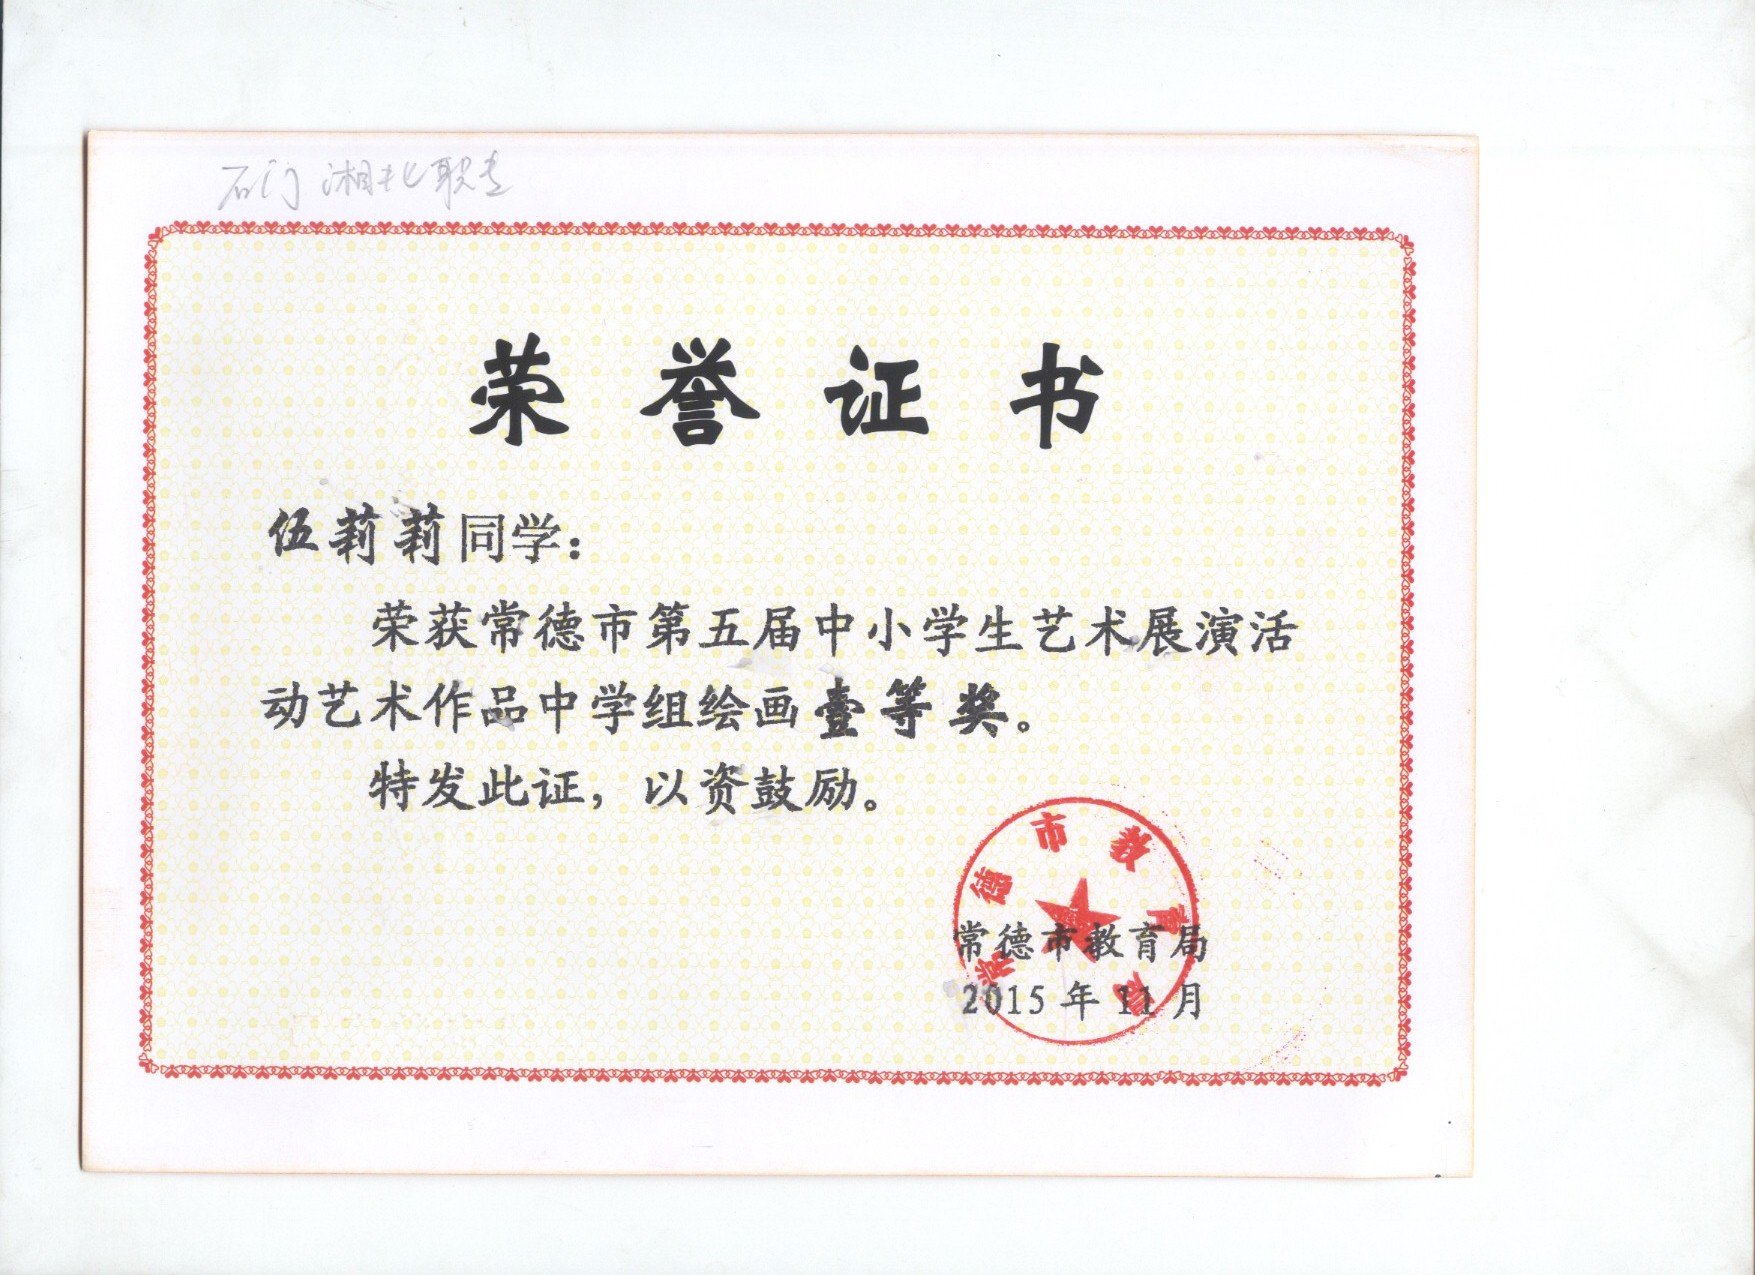 石门 湘北职专
荣誉证书
伍莉莉同学：
荣获常德市第五届中小学生艺术展演活
动艺术作品中学组绘画壹等奖。
特发此证，以资鼓励。
常德市教育局
常德市教育局
2015年11月